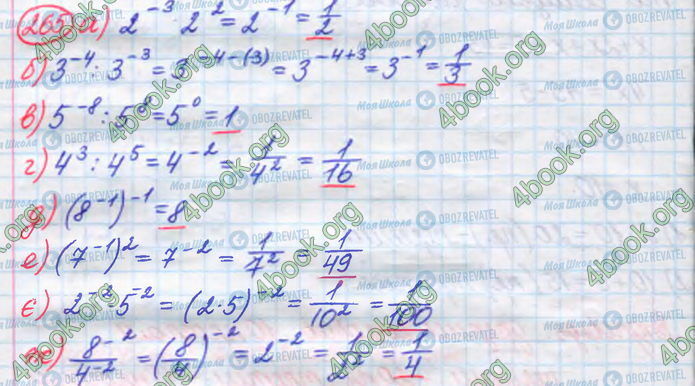 265 а) 2⁻³ · 2² = 2⁻¹ = 1/2
б) 3⁻⁴ : 3⁻³ = 3⁻⁴⁻⁽³⁾ = 3⁻⁴⁺³ = 3⁻¹ = 1/3
в) 5⁻⁸ : 5⁻⁸ = 5⁰ = 1
г) 4³ : 4⁵ = 4⁻² = 1/4² = 1/16
д) (8⁻¹)⁻¹ = 8
е) (7⁻¹)² = 7⁻² = 1/7² = 1/49
є) 2⁻² · 5⁻² = (2·5)⁻² = 1/10² = 1/100
8⁻²/4⁻² = (8/4)⁻² = 2⁻² = 1/2² = 1/4
4book.org
Моя Школа
OBOZREVATEL